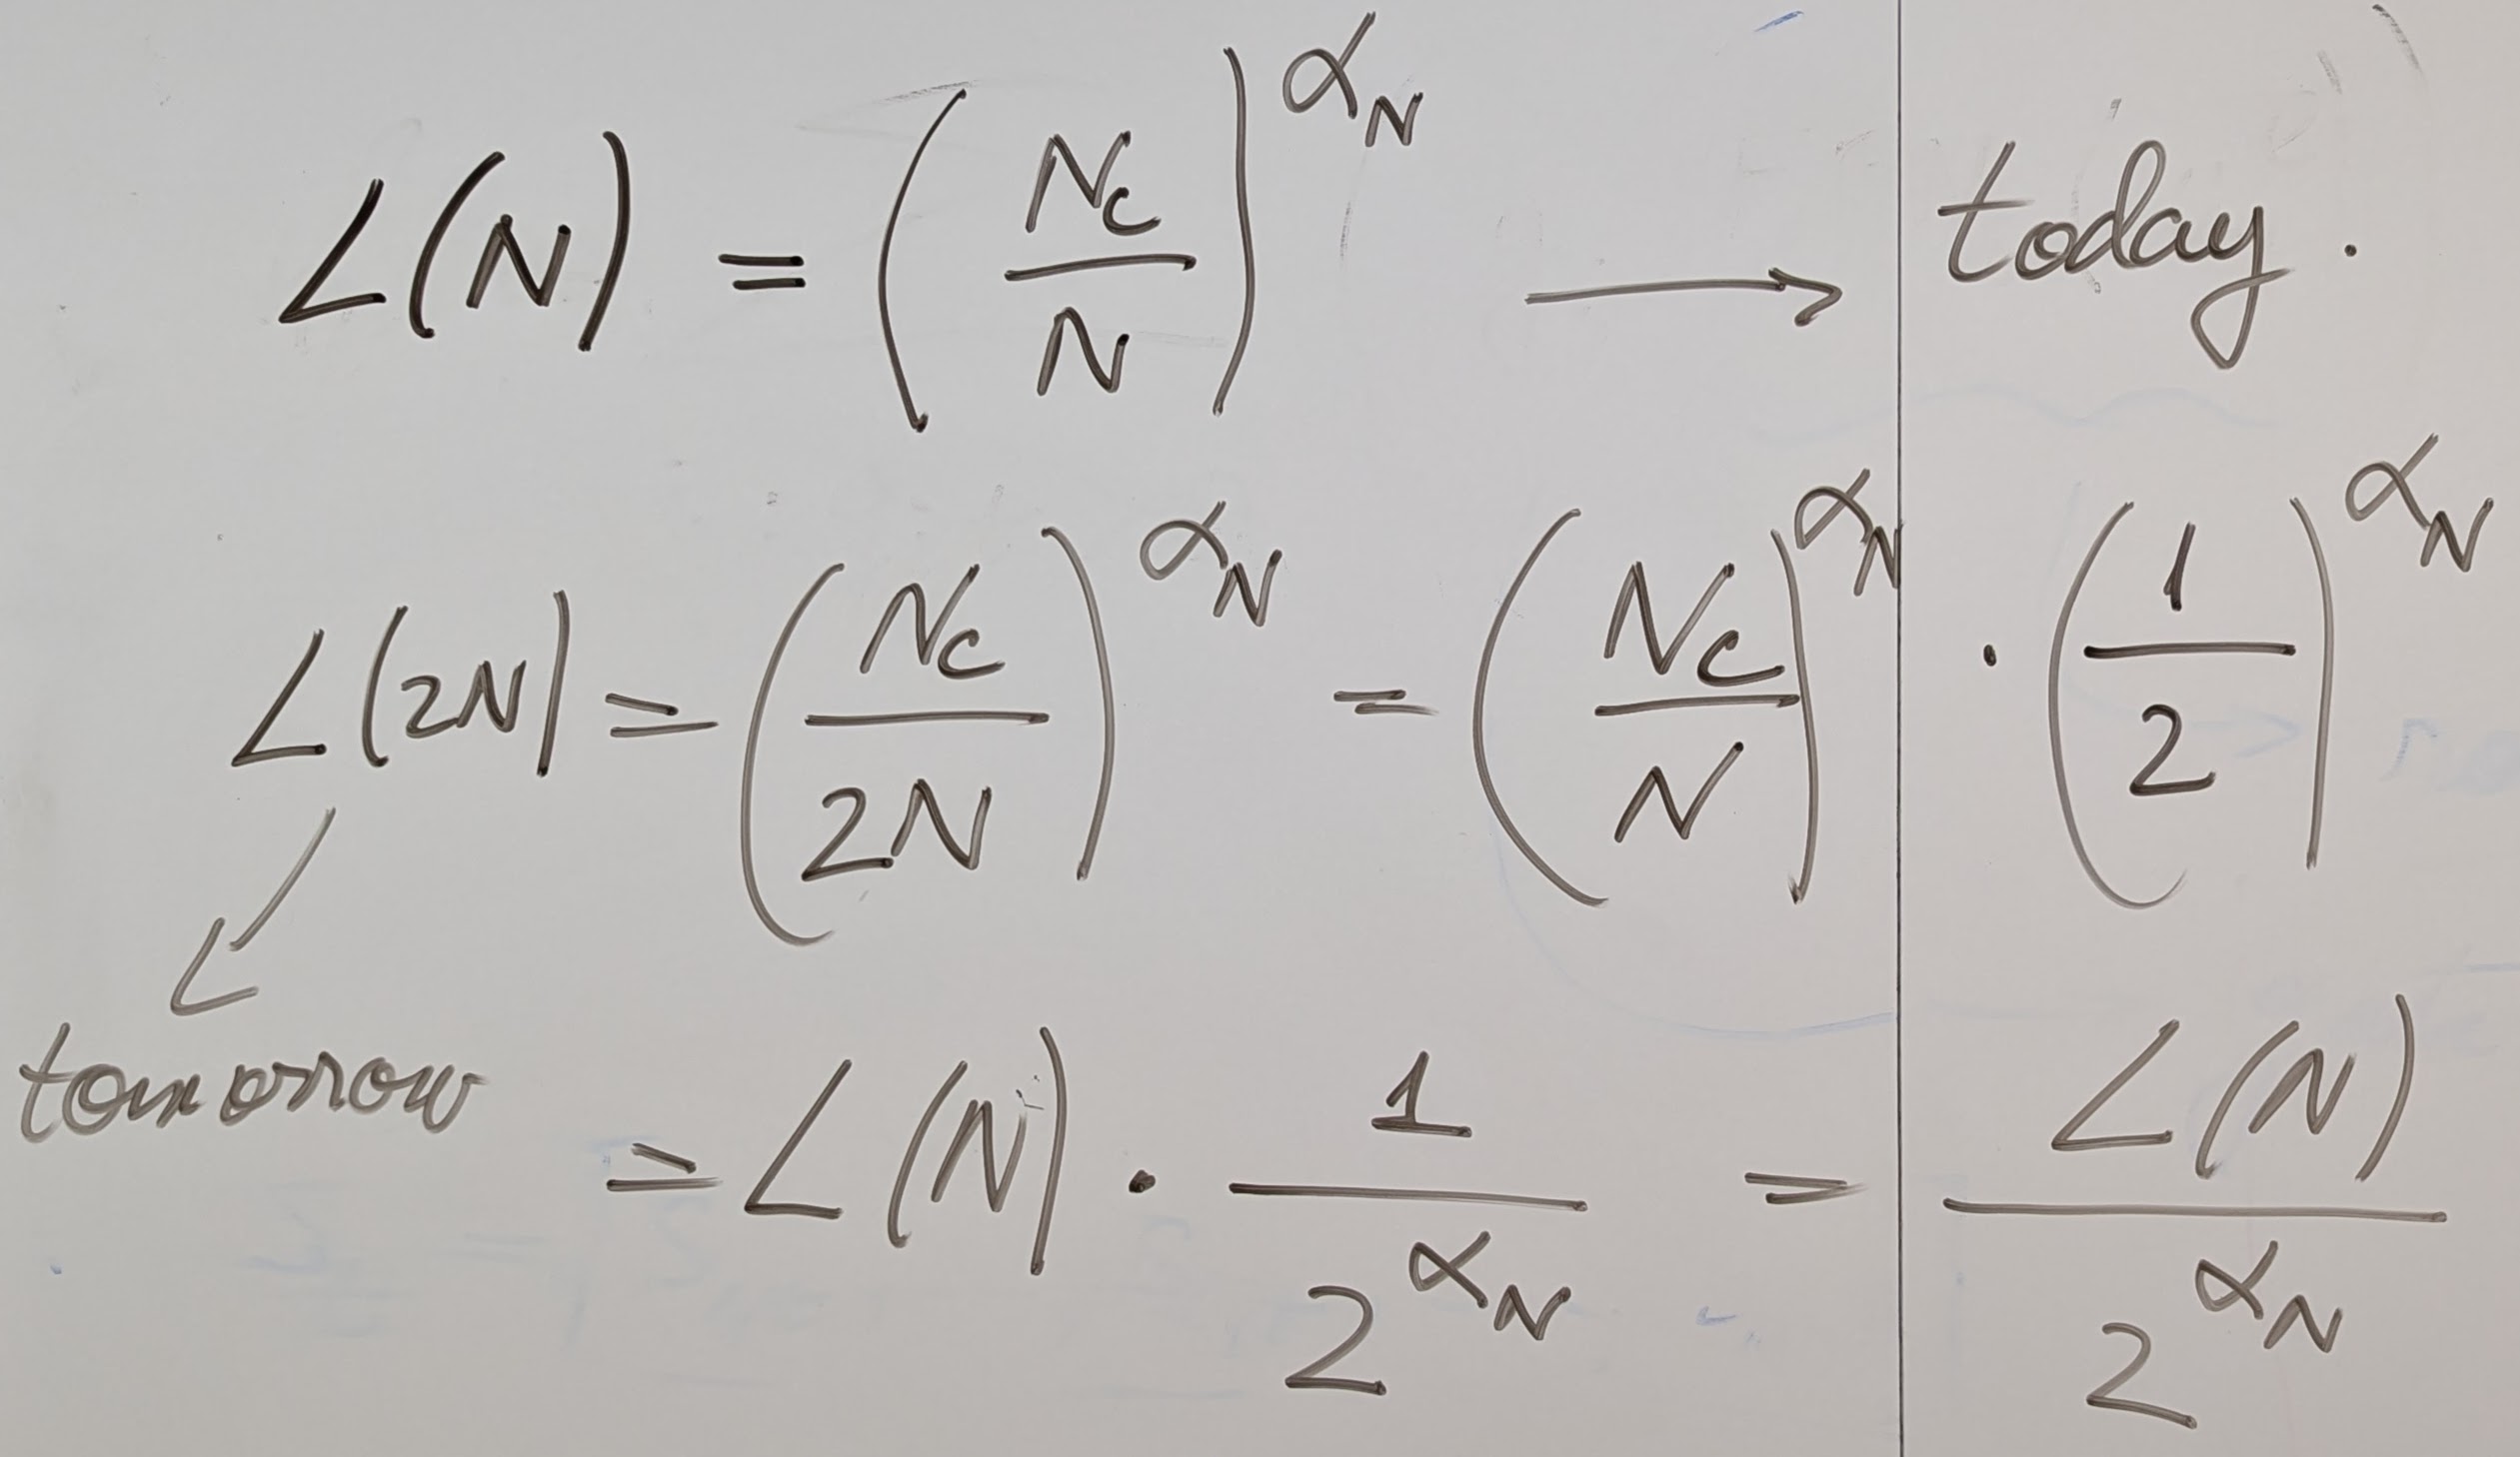 L(N) = (Nc/N)^αN → today.
L(2N) = (Nc/2N)^αN = (Nc/N)^αN · (1/2)^αN
tomorrow
= L(N) · 1/2^αN = L(N)/2^αN